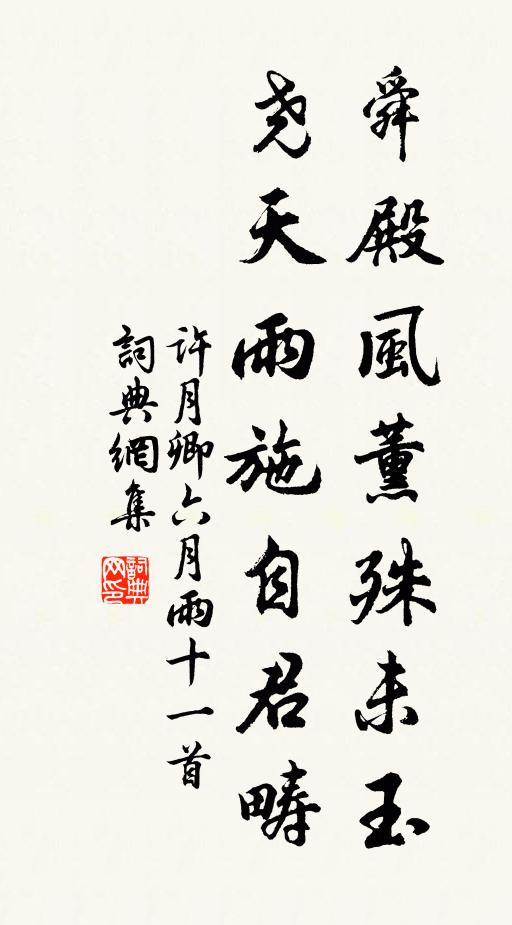 舜殿風薰殊未玉
堯天雨施自君疇
許月卿六月雨十一首
詞典網集
詞典网印